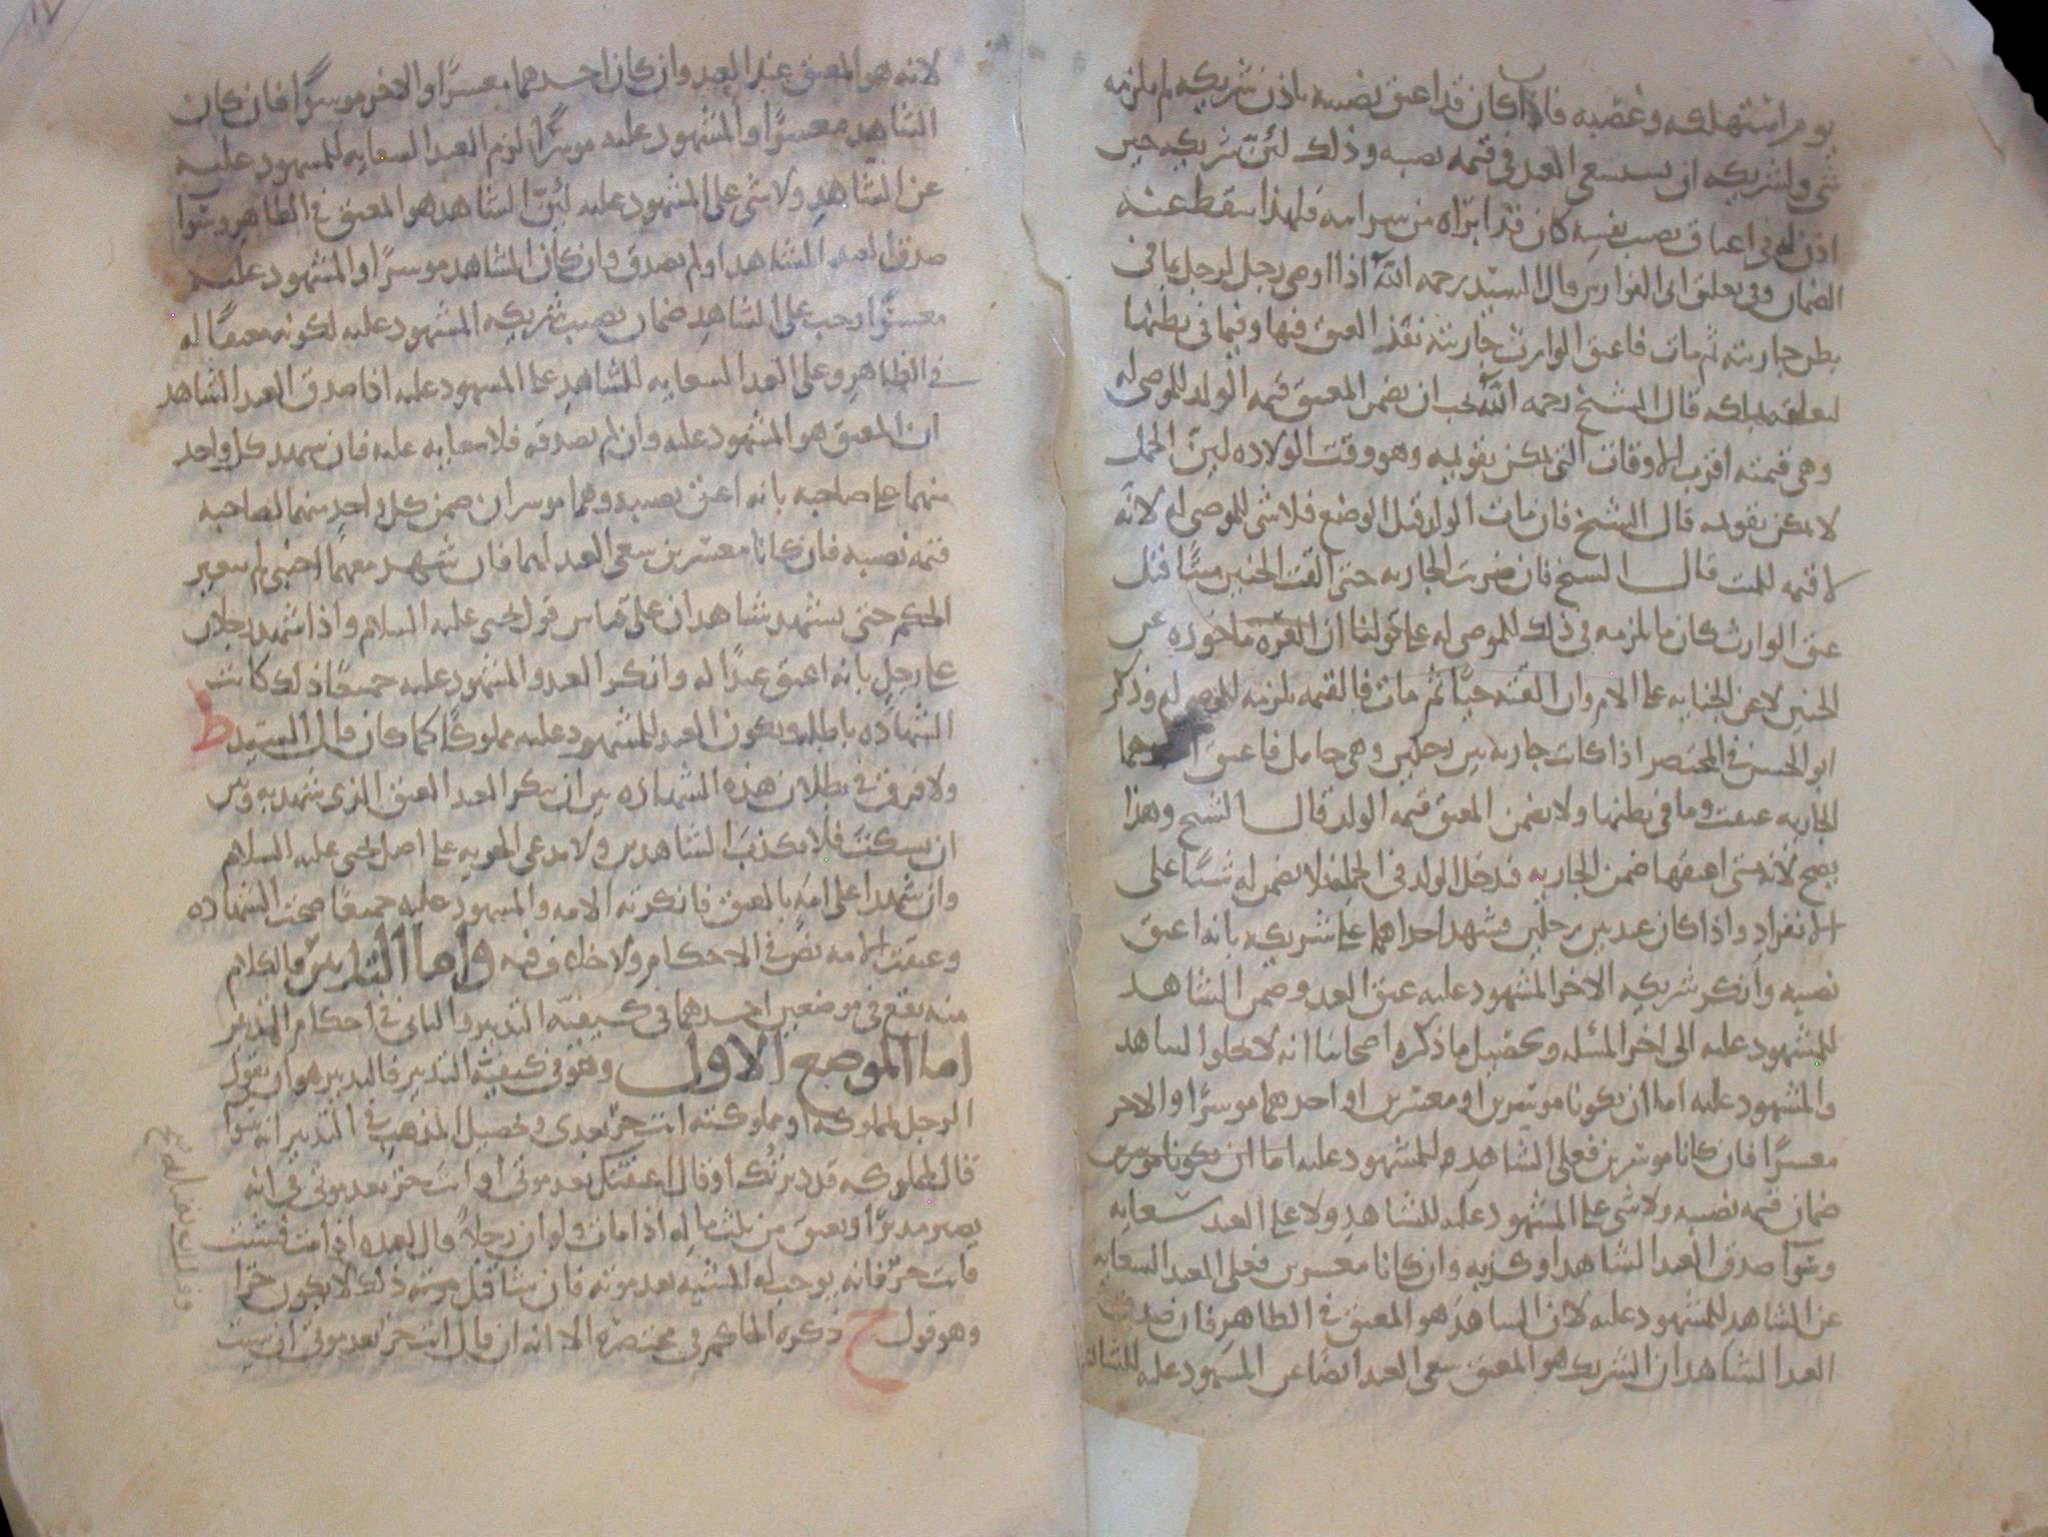 يوم استهلكه وغصبه فاذا كان قد اعتق نصيبه باذن شريكه لم يلزمه
شي ولشريكه ان يستسعي العبد في قيمه نصيبه وذلك لئن شريكه حين
اذن له في اعتاق نصيب نفسه كان قد ابراه من سرايته فلهذا سقط عنه
الضمان وفي تعليق ابي الفوارس قال السيد رحمه الله اذا اوصى رجل لرجل بما في
بطن جاريته ثم مات فاعتق الوارث جاريته نفذ العتق فيها وفيما في بطنها
لتعلقه بملكه قال الشيخ رحمه الله يجب ان يضمن المعتق قيمه الولد للموصى له
وهي قيمته اقرب الاوقات التي يمكن تقويمه وهو وقت الولاده لئن الحمل
لا يمكن تقويمه قال الشيخ فان مات الولد قبل الوضع فلا شي للموصى له لانه
لا قيمه للميت قال الشيخ فان ضربت الجاريه حتى القت الجنين ميتا قبل
عتق الوارث كان ما لزمه في ذلك للموصى له على قولنا ان الغره ماخوذه عن
الجنين لا عن الجنايه على الام وان القته حيا ثم مات فالقيمه يلزمه للموصى له وذكر
ابو الحسن في المختصر اذا كانت جاريه بين رجلين وهي حامل فاعتق احدهما
الجاريه عتقت وما في بطنها ولا يضمن المعتق قيمه الولد قال الشيخ وهذا
يصح لانه متى اعتقها ضمن الجاريه فدخل الولد في الجمله فلا يضمن له شيئا على
الانفراد واذا كان عبد بين رجلين فشهد احدهما على شريكه بانه اعتق
نصيبه وانكر شريكه الاخر المشهود عليه عتق العبد وضمن الشاهد
للمشهود عليه الى اخر المسله وتحصيل ما ذكره اصحابنا انه لا يخلوا الشاهد
والمشهود عليه اما ان يكونا موسرين او معسرين او احدهما موسرا والاخر
معسرا فان كانا موسرين فعلى الشاهد للمشهود عليه اما ان يكونا موسرين
ضمان قيمه نصيبه ولا شي على المشهود عليه للشاهد ولا على العبد سعايه
وسوا صدق العبد الشاهد او كذبه وان كانا معسرين فعلى العبد السعايه
عن الشاهد للمشهود عليه لان الشاهد هو المعتق في الظاهر فان صدق
العبد الشاهد ان الشريك هو المعتق سعى العبد ايضا عن المشهود عليه للشاهد
لانه هو المعتق عند العبد وان كان احدهما معسرا والاخر موسرا فان كان
الشاهد معسرا والمشهود عليه موسرا لزم العبد السعايه للمشهود عليه
عن الشاهد ولا شي على المشهود عليه لئن الشاهد هو المعتق في الظاهر وسوا
صدق العبد الشاهد او لم يصدق وان كان الشاهد موسرا والمشهود عليه
معسرا وجب على الشاهد ضمان نصيب شريكه المشهود عليه لكونه معتقا له
في الظاهر وعلى العبد السعايه للشاهد على المشهود عليه اذا صدق العبد الشاهد
ان المعتق هو المشهود عليه وان لم يصدقه فلا سعايه عليه فان شهد كل واحد
منهما على صاحبه بانه اعتق نصيبه وهما موسران ضمن كل واحد منهما لصاحبه
قيمه نصيبه فان كانا معسرين سعى العبد لهما فان شهد معهما اجنبي لم يتغير
الحكم حتى يشهد شاهدان على قياس قول يحيى عليه السلام واذا شهد رجلان
على رجل بانه اعتق عبدا له وانكر العبد والمشهود عليه جميعا ذلك كانت
الشهاده باطله ويكون العبد للمشهود عليه مملوكا كما كان قال السيد ط
ولا فرق في بطلان هذه الشهاده بين ان ينكر العبد العتق الذي شهد به وبين
ان يسكت فلا يكذب الشاهدين ولا يدعي الحريه على اصل يحيى عليه السلام
وان شهدا على امه بالعتق فانكرته الامه والمشهود عليه جميعا صحت الشهاده
وعتقت الامه نص في الاحكام ولا خلاف فيه واما التدبير فالكلام
منه يقع في موضعين احدهما في كيفيه التدبير والثاني في احكام التدبير
اما الموضع الاول وهو في كيفيه التدبير فالتدبير هو ان يقول
الرجل لمملوكه او مملوكته انت حر بعدي وتحصيل المذهب في التدبير انه سوا
قال لمملوكه قد دبرتك او قال اعتقتك بعد موتي او انت حر بعد موتي في انه
يصير مدبرا ويعتق من ثلث ماله اذا مات ولو ان رجلا قال لعبده اذا مت فشئت
فانت حر فانه يوجب له المشيه بعد موته فان شا قبل موته ذلك لا يكون حرا
وهو قول ح ذكره الحاكم في مختصره الا انه ان قال انت حر بعد موتي ان شئت